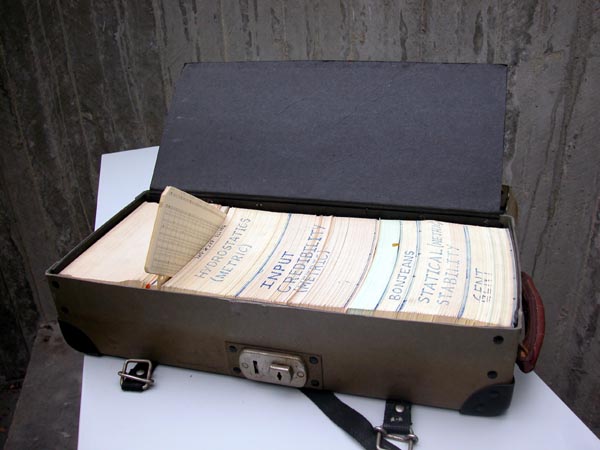 HYDROSTATICS
(METRIC)
INPUT
CREDIBILITY
(METRIC)
BONJEANS
STATICAL (METRIC)
STABILITY